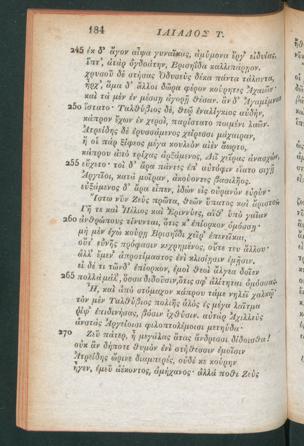 184 ΙΛΙΑΔΟΣ Τ.
245 ἐκ δ' ἄγον αἶψα γυναῖκας, ἀμύμονα ἔργ' εἰδυίας,
ἕπτ', ἀτὰρ ὀγδοάτην, Βρισηΐδα καλλιπάρῃον.
χρυσοῦ δὲ στήσας Ὀδυσεὺς δέκα πάντα τάλαντα,
ἦρχ', ἅμα δ' ἄλλοι δῶρα φέρον κούρητες Ἀχαιῶν·
καὶ τὰ μὲν ἐν μέσσῃ ἀγορῇ θέσαν. ἂν δ' Ἀγαμέμνων
250 ἵστατο· Ταλθύβιος δὲ, θεῷ ἐναλίγκιος αὐδὴν,
κάπρον ἔχων ἐν χερσὶ, παρίστατο ποιμένι λαῶν.
Ἀτρείδης δὲ ἐρυσσάμενος χείρεσσι μάχαιραν,
ἥ οἱ πὰρ ξίφεος μέγα κουλεὸν αἰὲν ἄωρτο,
κάπρου ἀπὸ τρίχας ἀρξάμενος, Διῒ χεῖρας ἀνασχὼν,
255 εὔχετο· τοὶ δ' ἄρα πάντες ἐπ' αὐτόφιν εἵατο σιγῇ
Ἀργεῖοι, κατὰ μοῖραν, ἀκούοντες βασιλῆος.
εὐξάμενος δ' ἄρα εἶπεν, ἰδὼν εἰς οὐρανὸν εὐρύν·
Ἴστω νῦν Ζεὺς πρῶτα, θεῶν ὕπατος καὶ ἄριστος,
Γῆ τε καὶ Ἠέλιος καὶ Ἐριννύες, αἵθ' ὑπὸ γαῖαν
260 ἀνθρώπους τίνυνται, ὅτις κ' ἐπίορκον ὀμόσσῃ·
μὴ μὲν ἐγὼ κούρῃ Βρισηΐδι χεῖρ' ἐπενεῖκαι,
οὔτ' εὐνῆς πρόφασιν κεχρημένος, οὔτε τευ ἄλλου·
ἀλλ' ἔμεν' ἀπροτίμαστος ἐνὶ κλισίῃσιν ἐμῇσιν.
εἰ δέ τι τῶνδ' ἐπίορκον, ἐμοὶ θεοὶ ἄλγεα δοῖεν
265 πολλὰ μάλ', ὅσσα διδοῦσιν, ὅτις σφ' ἀλίτηται ὀμόσσας.
Ἦ, καὶ ἀπὸ στόμαχον κάπρου τάμε νηλέϊ χαλκῷ·
τὸν μὲν Ταλθύβιος πολιῆς ἁλὸς ἐς μέγα λαῖτμα
ῥῖψ' ἐπιδινήσας, βόσιν ἰχθύσιν. αὐτὰρ Ἀχιλλεὺς
ἀνστὰς Ἀργείοισι φιλοπτολέμοισι μετηύδα·
270 Ζεῦ πάτερ, ἦ μεγάλας ἄτας ἄνδρεσσι διδοῖσθα!
οὐκ ἂν δήποτε θυμὸν ἐνὶ στήθεσσιν ἐμοῖσιν
Ἀτρείδης ὤρινε διαμπερές, οὐδέ κε κούρην
ἦγεν, ἐμεῦ ἀέκοντος, ἀμήχανος· ἀλλά ποθι Ζεὺς